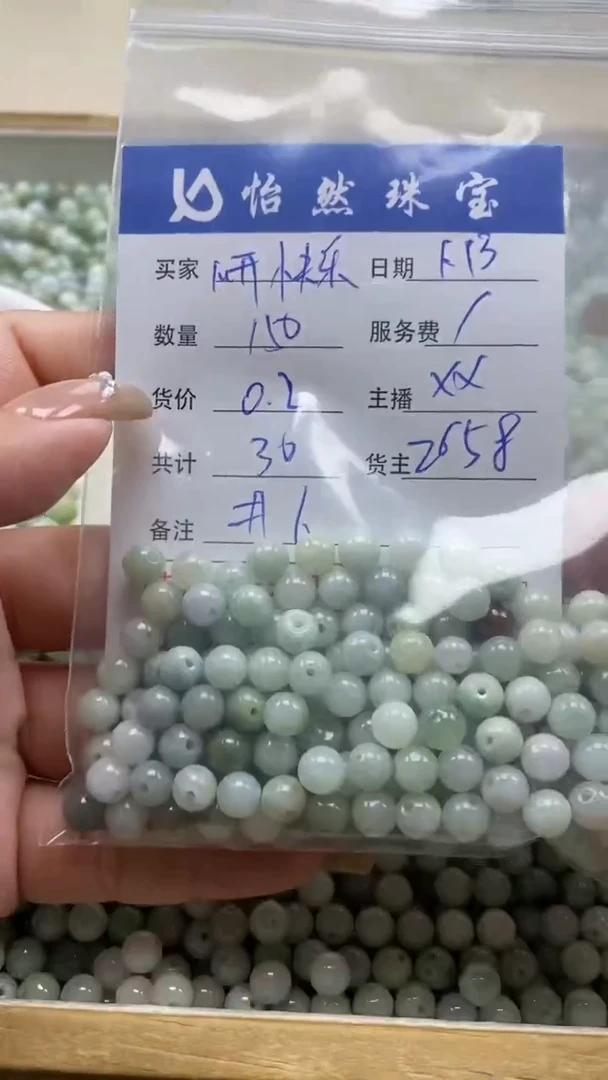 怡然珠宝
买家 研快乐 日期
数量 150 服务费 /
货价 0.2 主播 XX
共计 30 货主 2658
备注